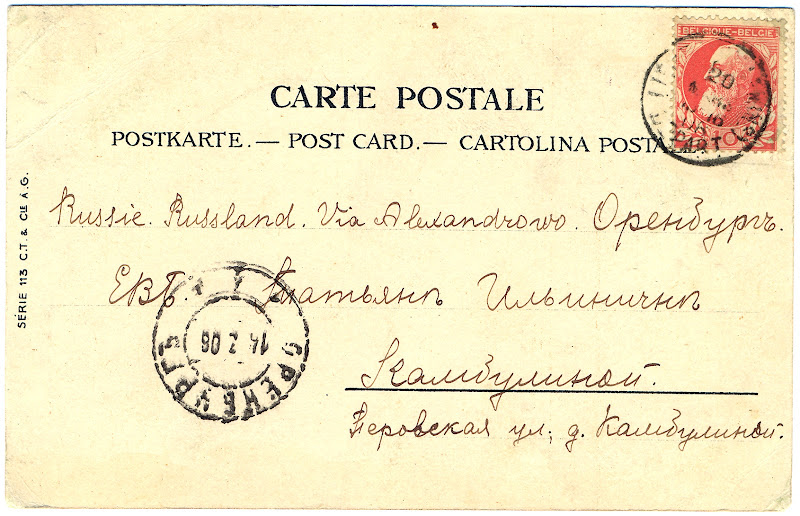 BELGIQUE-BELGIE
CARTE POSTALE
POSTKARTE. — POST CARD. — CARTOLINA POSTA
SÉRIE 113 C.T. & CIE A.G.
Russie. Russland. Via Alexandrowo. Оренбургъ.
ЕВБ. Татьянѣ Ильиничнѣ
Камбулиной.
Перовская ул; д. Камбулиной.
ОРЕНБУРГЪ